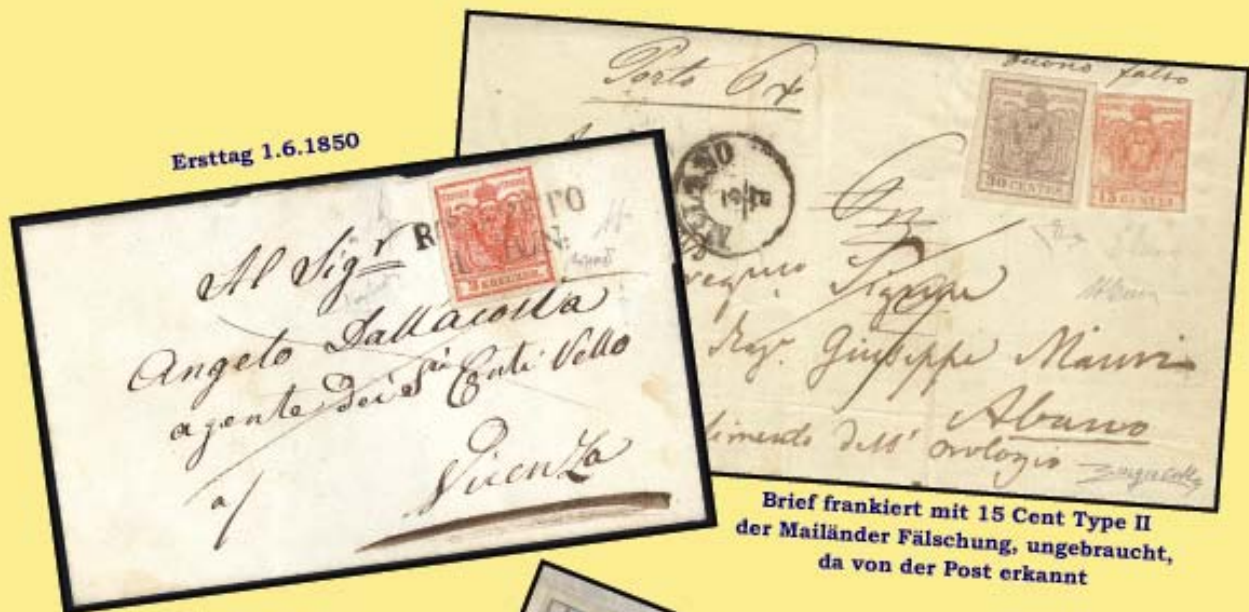 Ersttag 1.6.1850
Al Sigr
Angelo Dallacosta
agente dei Sri Conti Vello
a/
Vicenza
3 KREUZER.
Porto 6
buono falso
MILANO
30 CENTES
15 CENTES
Rag. Giuseppe Mauri
Abano
dell' orologio
Brief frankiert mit 15 Cent Type II
der Mailänder Fälschung, ungebraucht,
da von der Post erkannt